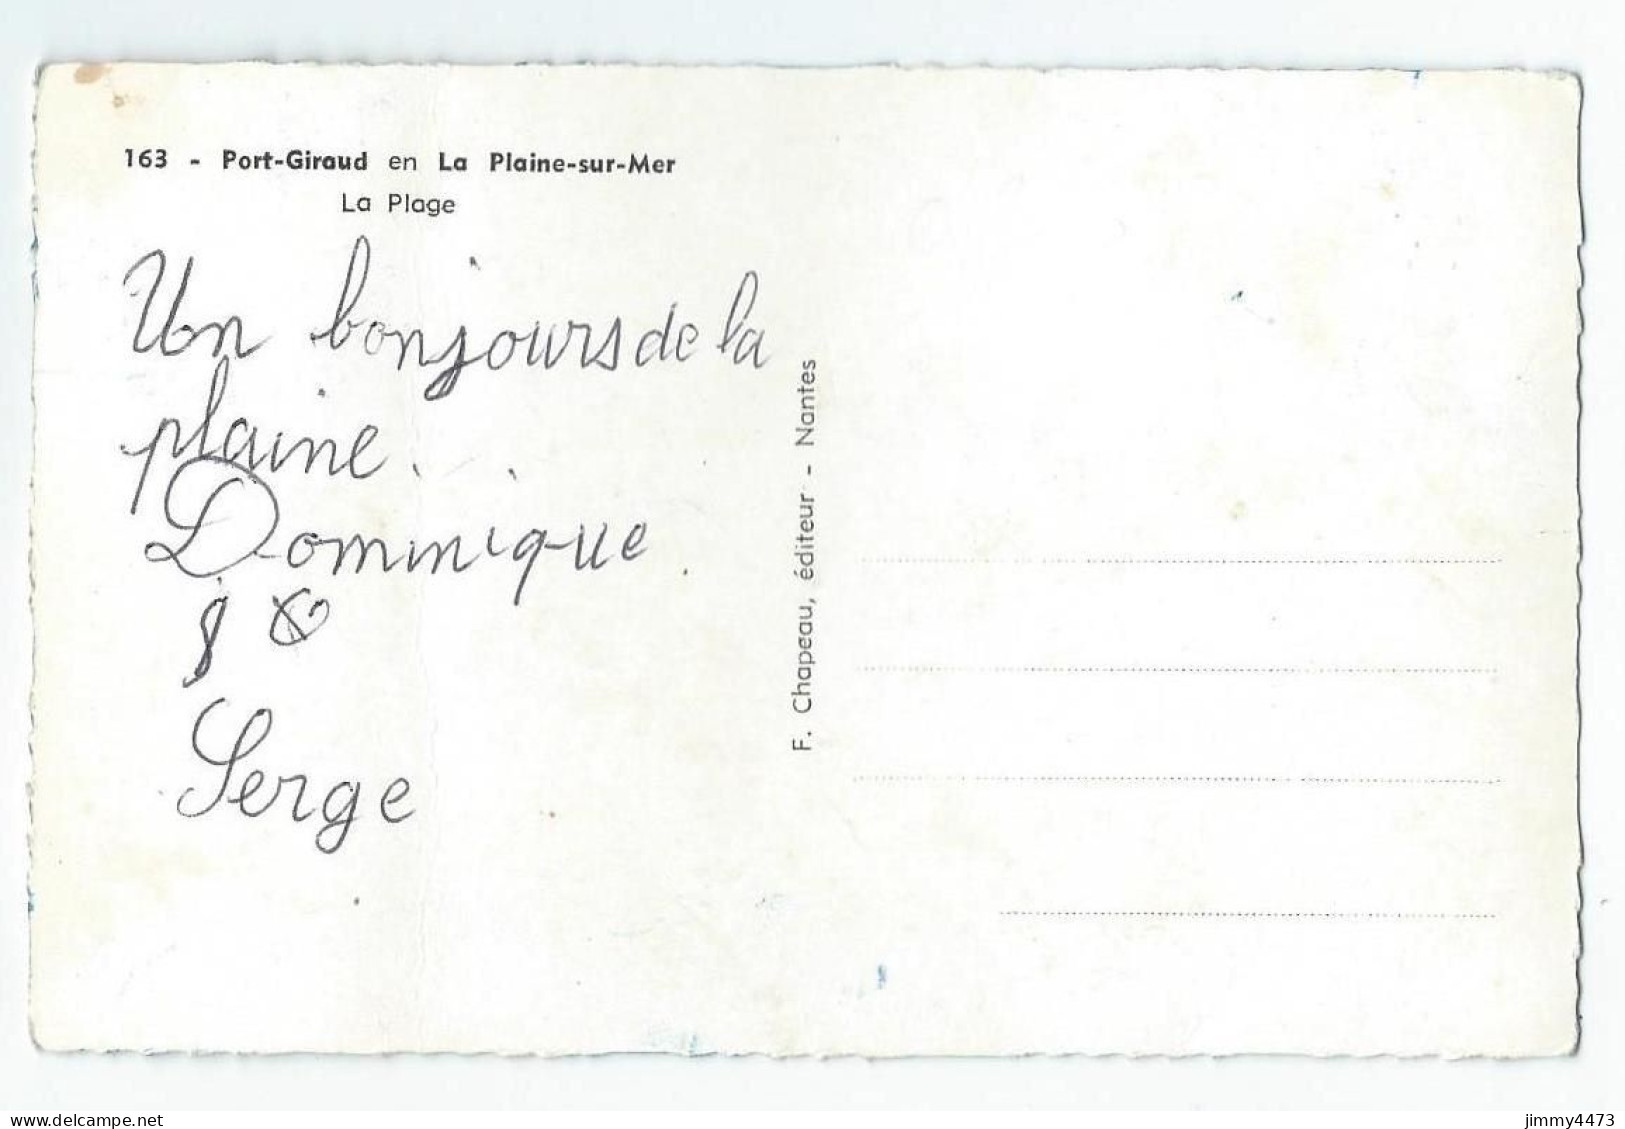 163 - Port-Giraud en La Plaine-sur-Mer
La Plage
Un bonjours de la
plaine.
Dominique
Serge
F. Chapeau, éditeur - Nantes
delcampe.net
jimmy4473